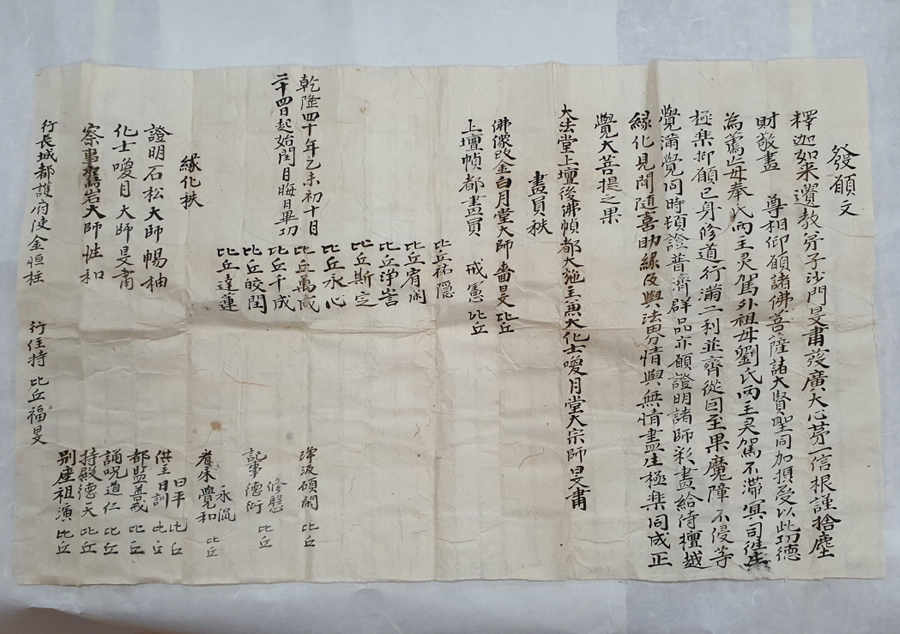 發願文
釋迦如來遺教弟子沙門旻肅發廣大心芿一信根謹捨塵
財敬畵 尊相仰願諸佛菩薩諸大賢聖同加摂受以此功德
為薦亡母奉氏両主灵駕外祖母劉氏両主灵駕不滯冥司徃生
極樂抑願已身修道行滿二利並齊從因至果魔障不侵等
覺滿覺同時頓證普濟群品亦願證明諸師彩畵給侍檀越
緣化見聞随喜助緣及與法界情與無情盡生極樂同成正
覺大菩提之果
大法堂上壇後佛幀都大施主兼大化士曖月堂大宗師旻肅
畵員秩
佛像改金白月堂大師 旻 比丘
上壇幀都畵員 戒憲 比丘
比丘祐隠
比丘宥閑
比丘淨峕
比丘斯定
比丘永心
比丘萬戒
比丘千成
比丘皎閏
比丘達蓮
淨波碩閑 比丘
修懸
記事德衍 比丘
永侃
眷來覺和 比丘
乾隆四十年乙未初十月
二十四日起始閏月晦日畢功
緣化秩
證明石松大師暢柚
化士曖月大師旻肅
察事鴛岩大師性和
行長城都護府使金恒柱
行住持 比丘福旻
日平 比丘
供主日訓 比丘
都監善戒 比丘
誦呪道仁 比丘
持殿德天 比丘
別座祖演 比丘